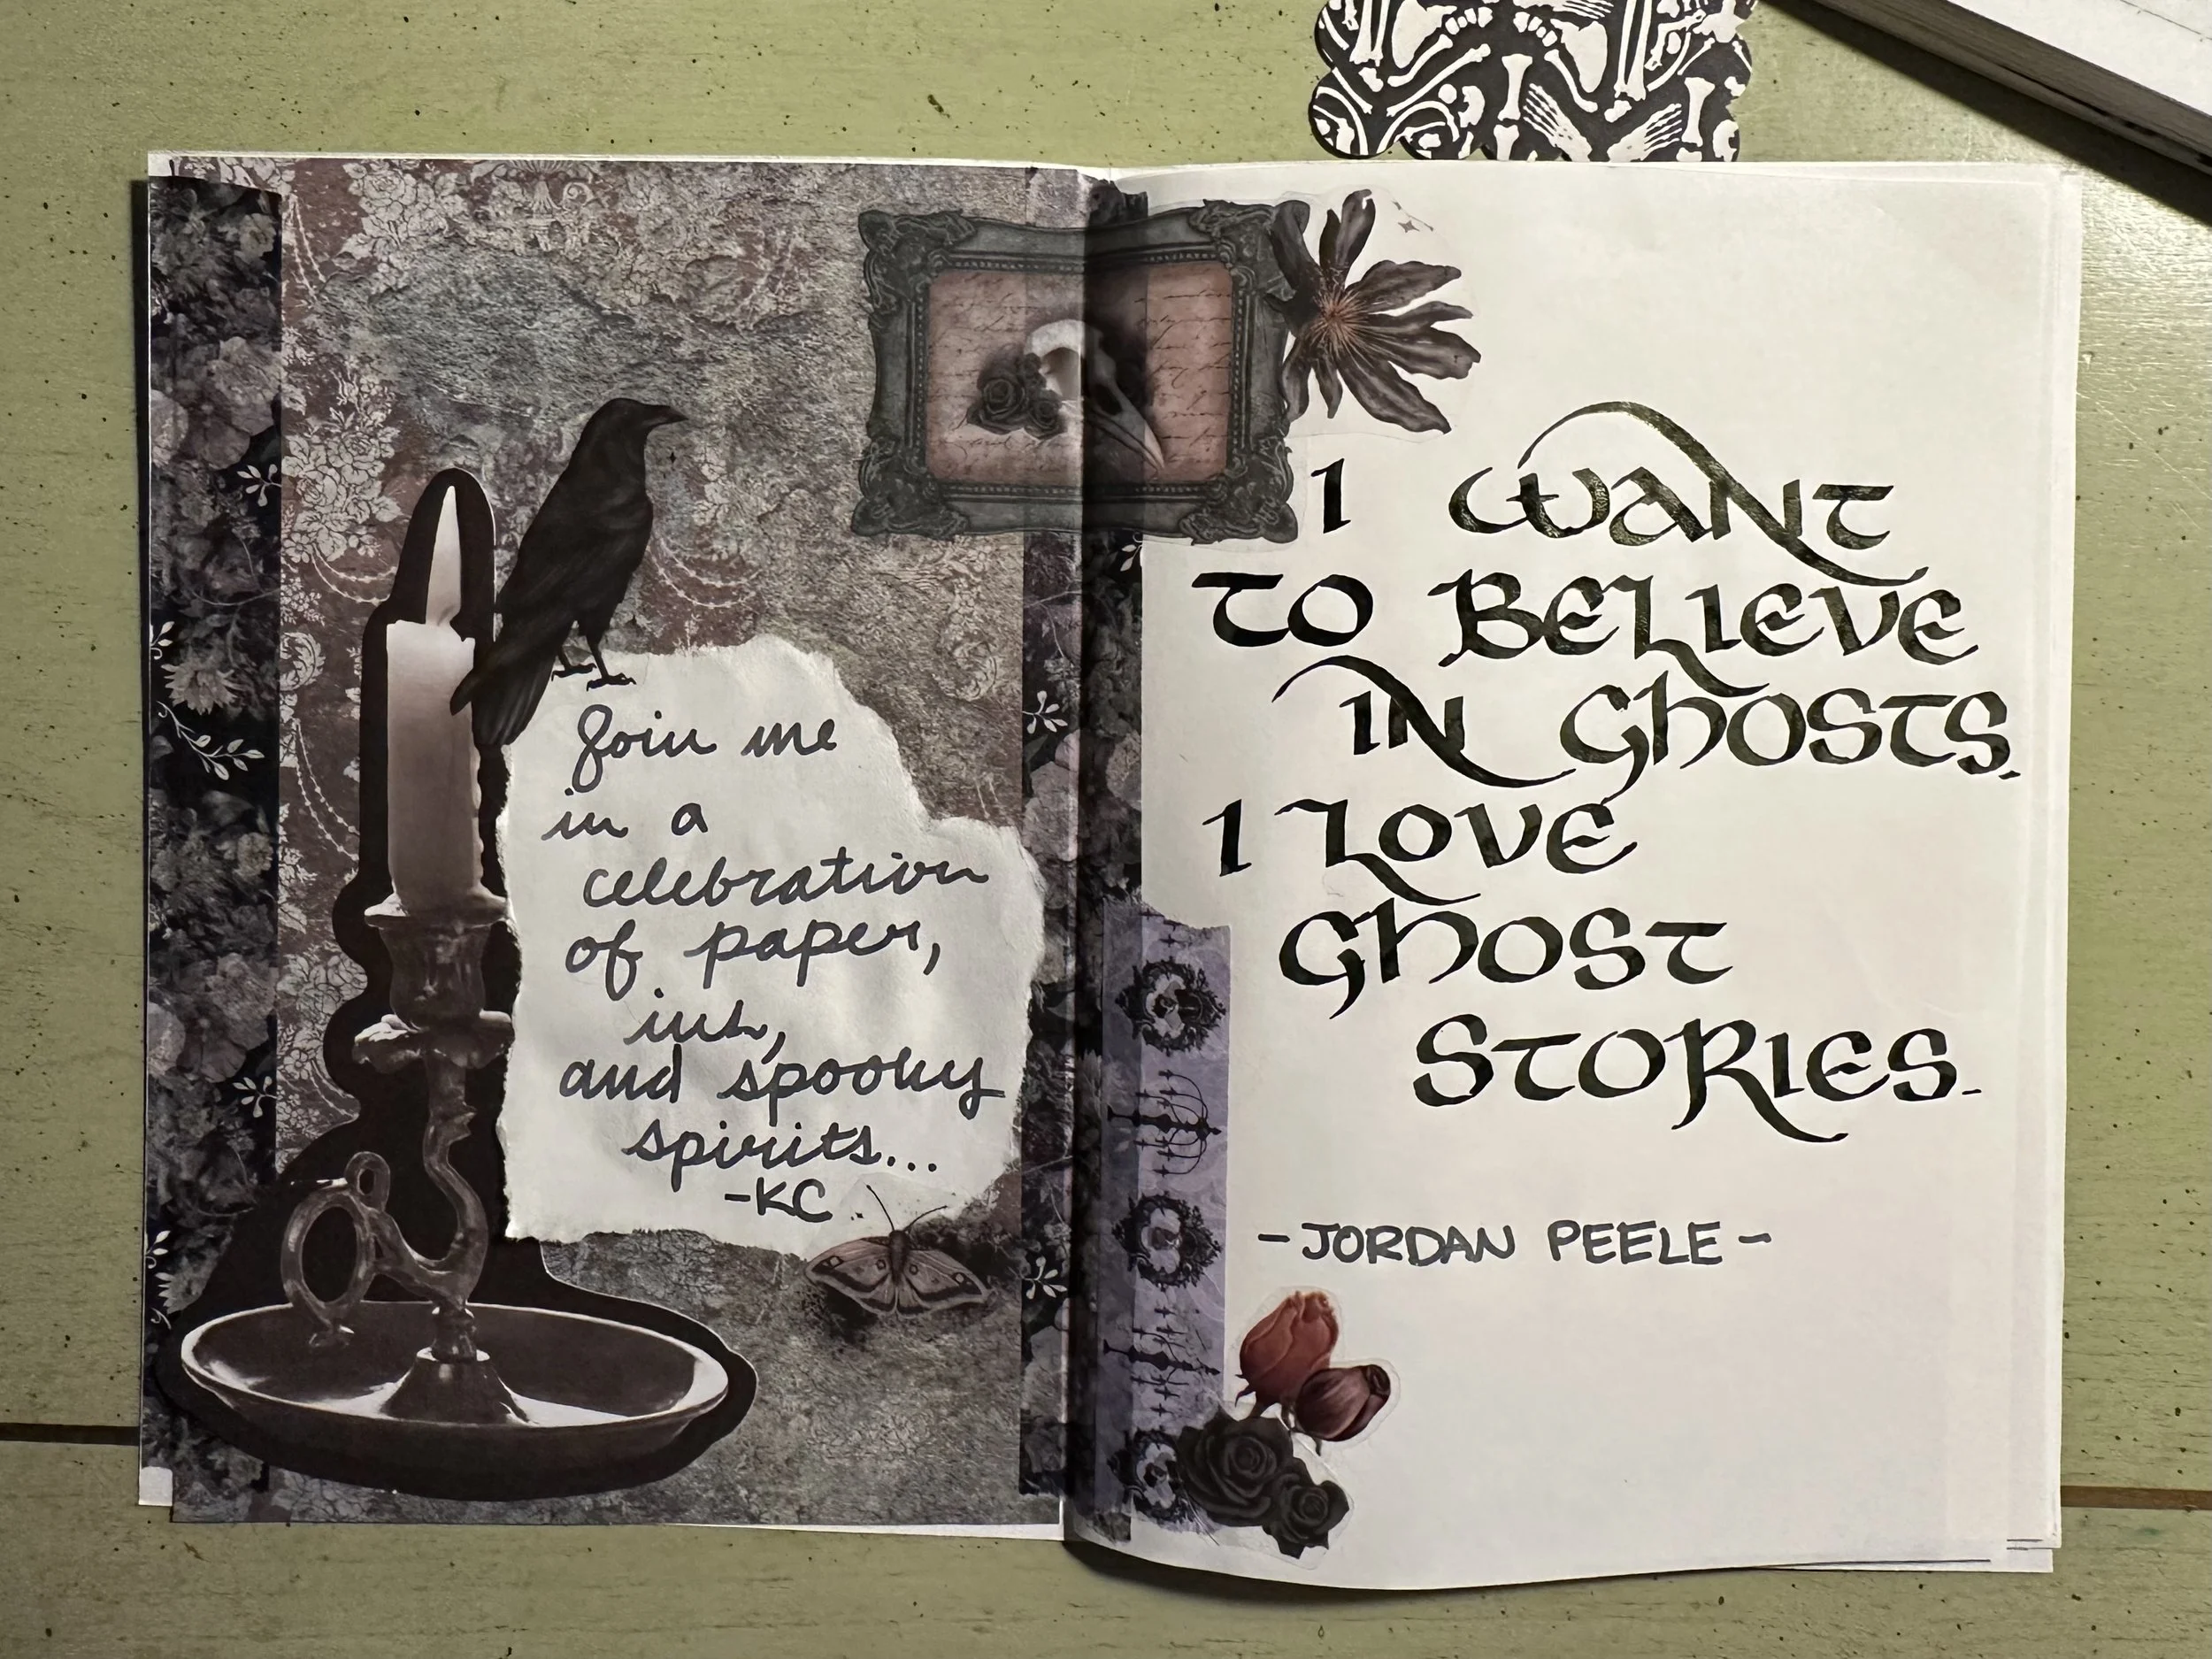 Join me
in a
celebration
of paper,
ink,
and spooky
spirits...
-KC
I WANT
TO BELIEVE
IN GHOSTS.
I LOVE
GHOST
STORIES.
- JORDAN PEELE -